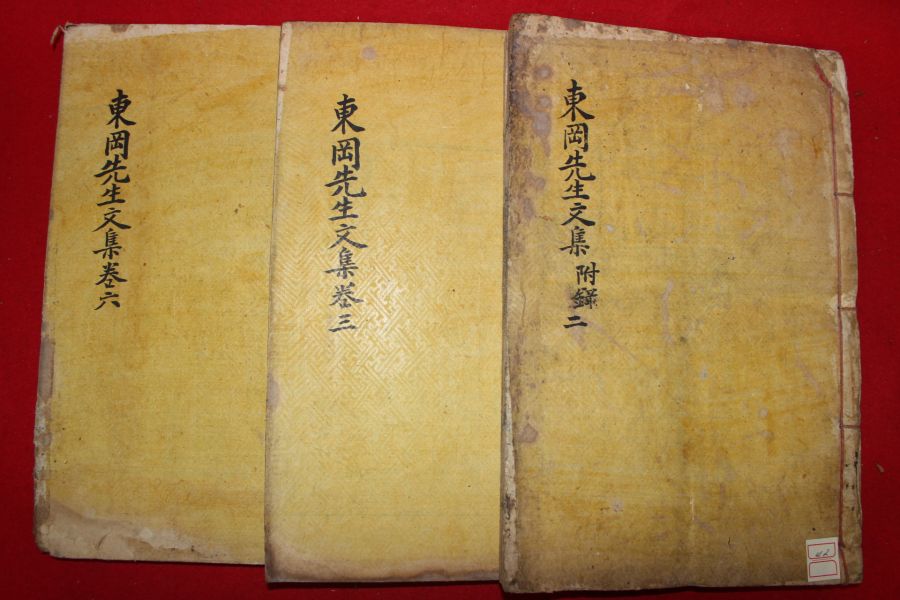 東岡先生文集 附錄 二
東岡先生文集卷三
東岡先生文集卷六